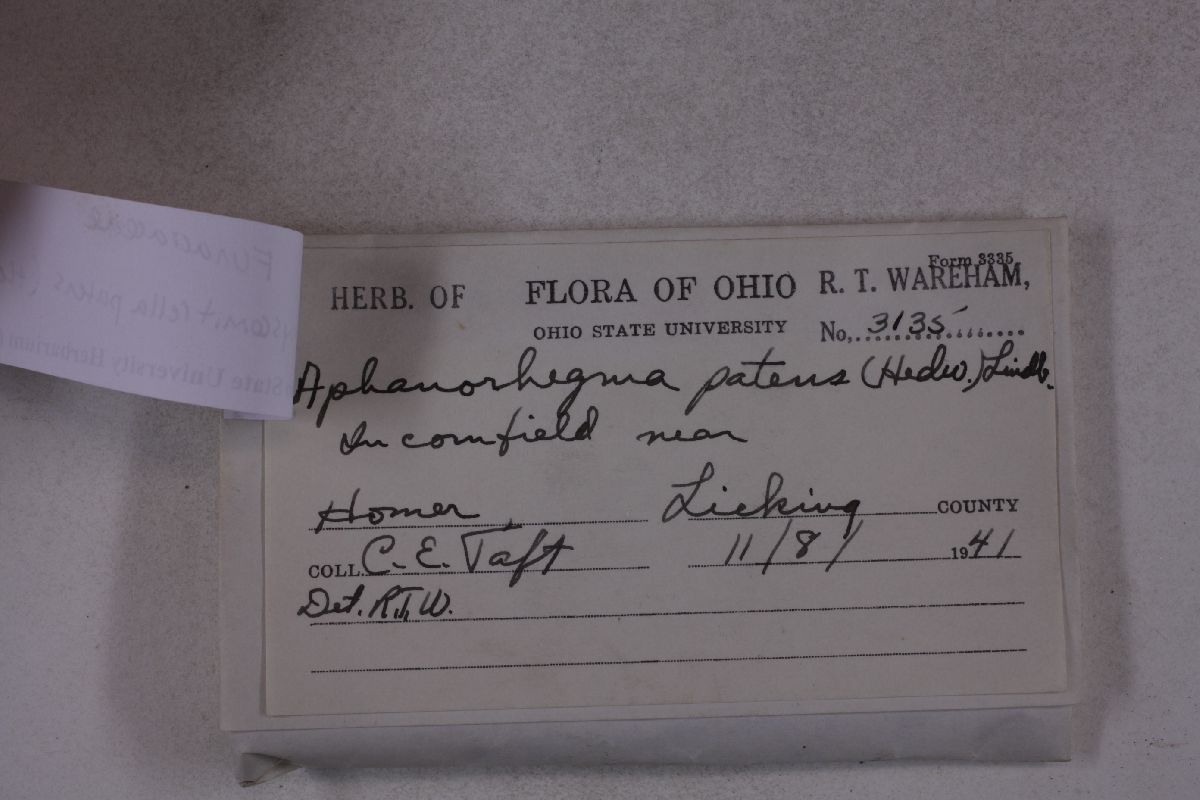 Form 3335
HERB. OF FLORA OF OHIO R. T. WAREHAM,
OHIO STATE UNIVERSITY No, 3135
Aphanorhegma patens (Hedw.) Lindb.
In cornfield near
Homer, Licking COUNTY
COLL. C. E. Taft 11/8/ 1941
Det. R.T.W.
State University Herbarium